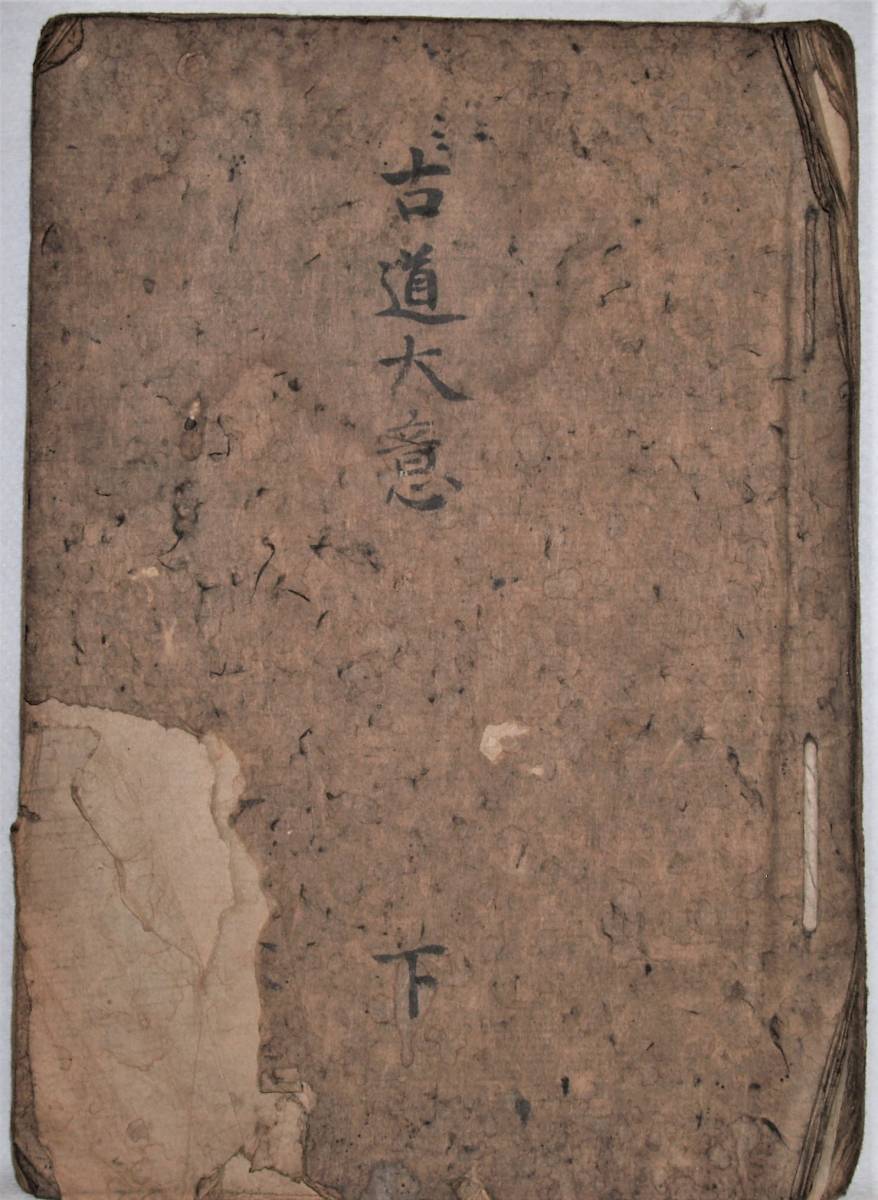 古道大意
下